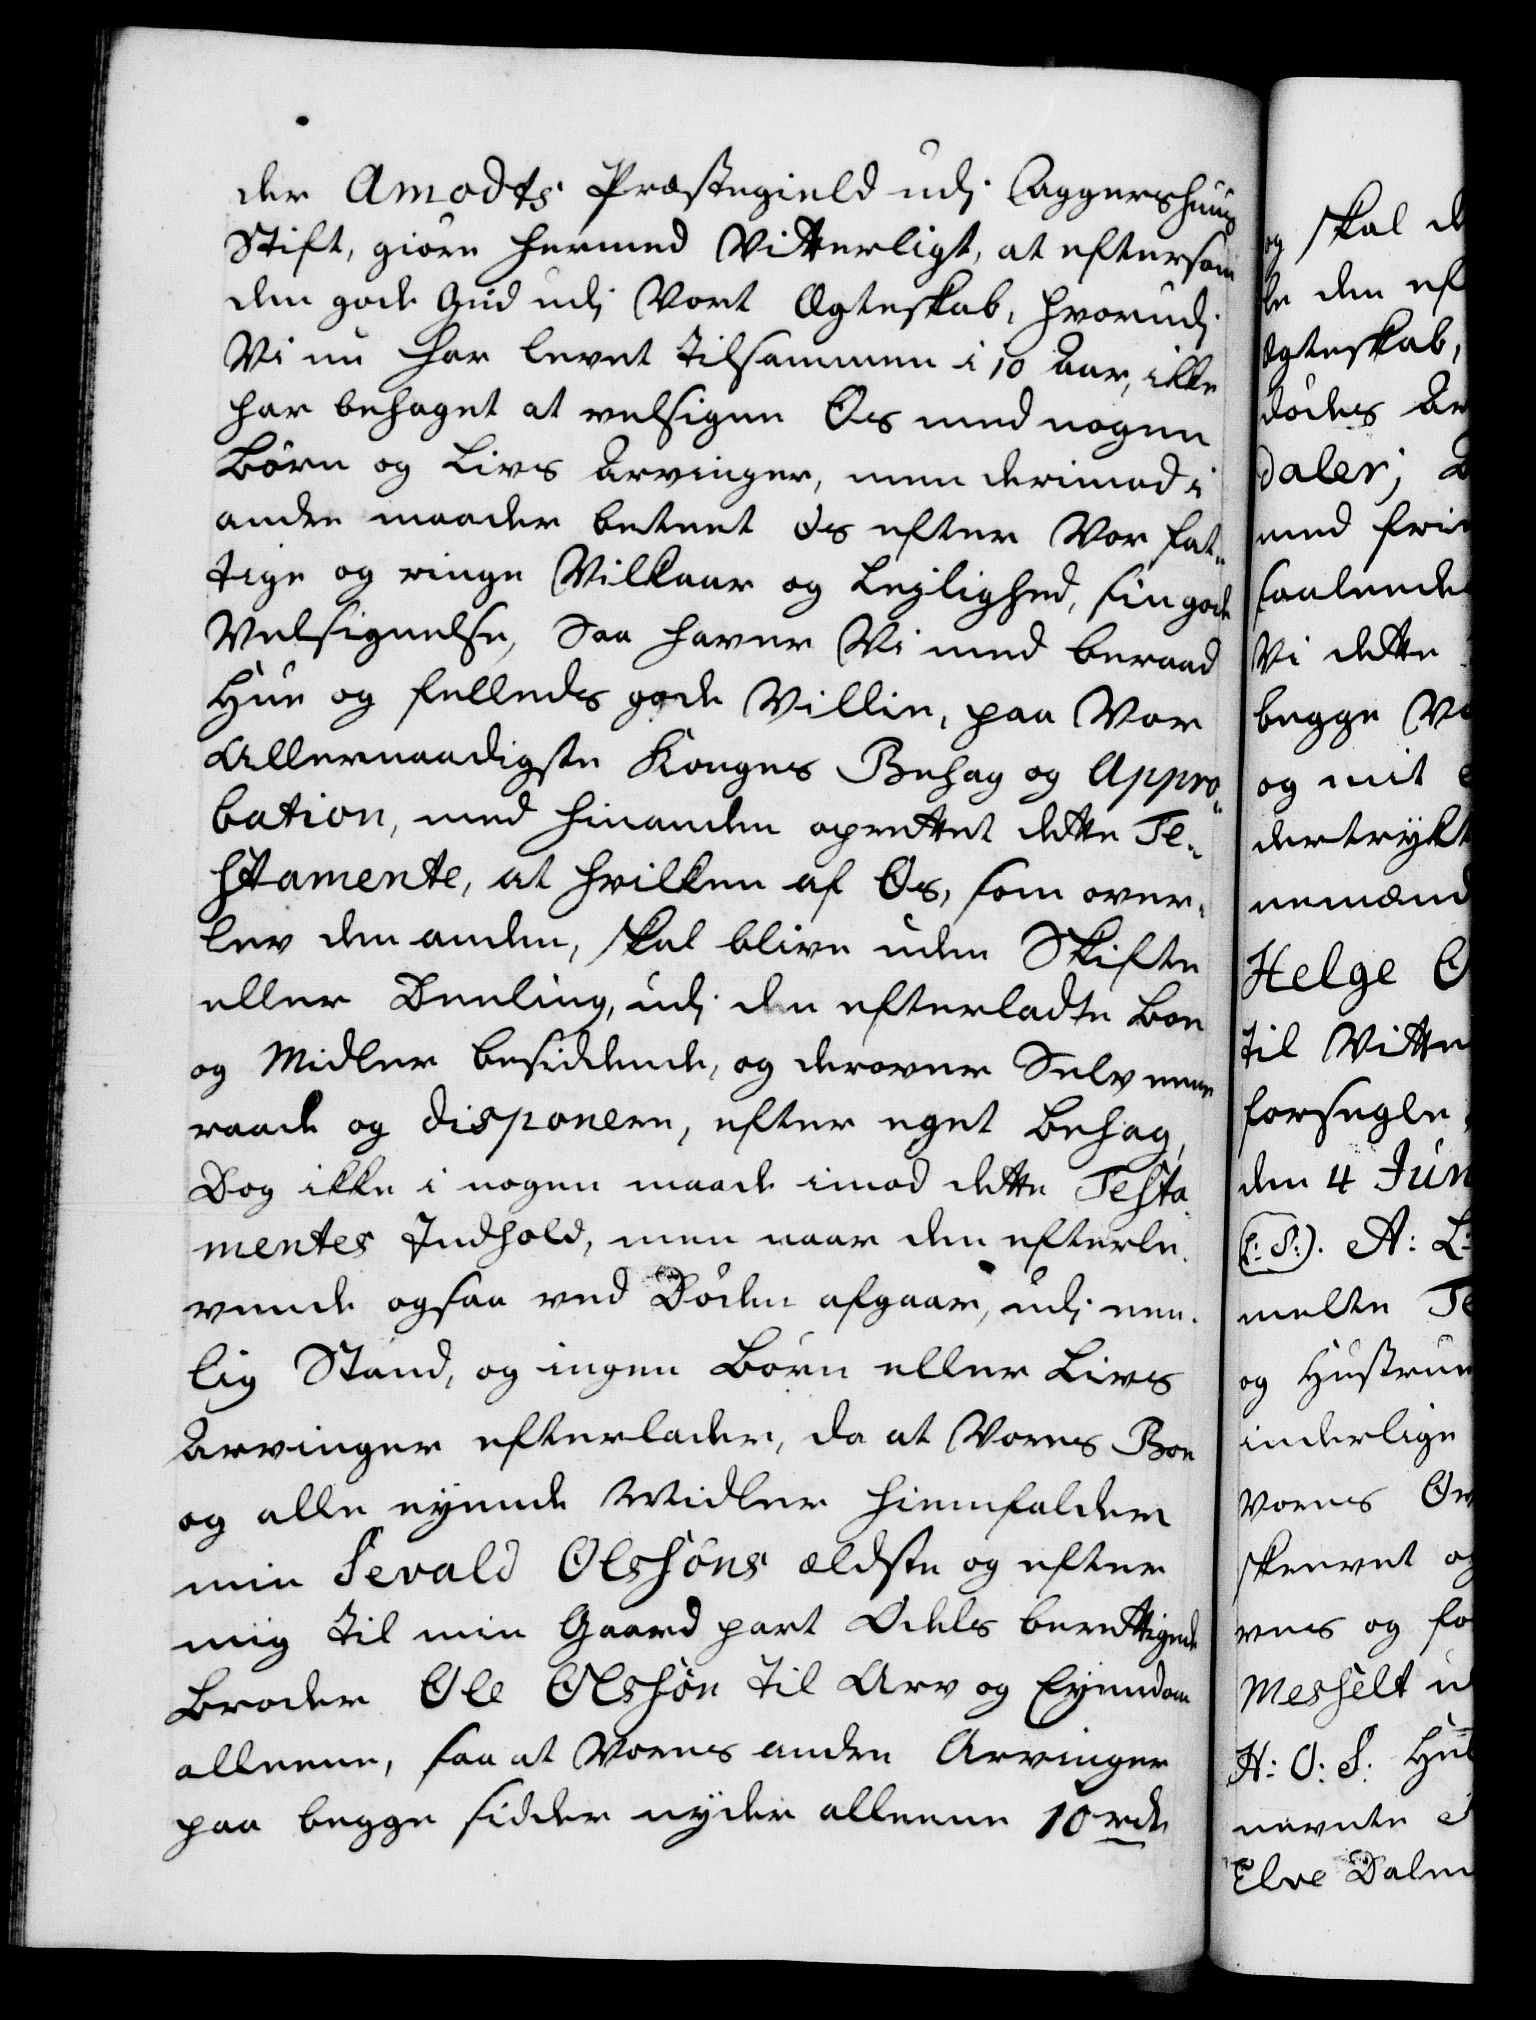 der Amodts Præstegield udj Aggershuus
Stift, giöre hermed Vitterligt, at eftersom
den gode Gud udj Vort Ægteskab, hvorudj
Vi nu har levet tilsammen i 10 Aar, ikke
har behaget at velsigne Os med nogen
Börn og Livs Arvinger, men derimod i
andre maader beteet Os efter Vor fat-
tige og ringe Vilkaar og Lejlighed, sin gode
Velsignelse, Saa haver Vi med beraad
Hue og felleds gode Villie, paa Vor
Allernaadigste Konges Behag og Appro-
bation, med hinanden oprettet dette Te-
stamente, at hvilken af Os, som over-
lev den anden, skal blive uden Skifte
eller Deeling, udj den efterladte Boe
og Midler besiddende, og derover Selv eene
raade og disponere, efter eget Behag,
Dog ikke i nogen maade imod dette Testa-
mentes Indhold, men naar den efterle-
vende ogsaa ved Döden afgaar, udj een-
lig Stand, og ingen Börn eller Livs
Arvinger efterlader, da at Vores Boe
og alle eyende Midler hiemfalder
min Sevald Olssöns ældste og efter
mig til min Gaard part Odels berettigede
Broder Ole Olssön til Arv og Eyendom
alleene, saa at Vores andre Arvinger
paa begge sidder nyder alleene 10 rdr
og skal d
le den ef
Ægteskab,
dödes Ar
daler;
med frie
saaledes
Vi dette
begge Vo
og mit
dertrykt
nemænd
Helge O
til Vitte
forsegle
den 4 Jun
(L: S:). A: L:
melte Te
og Hustrue
inderlige
Vores
skrevet og
ves og fo
Messelt u
H: O: S. Hu
nevnte
Elve Dalen